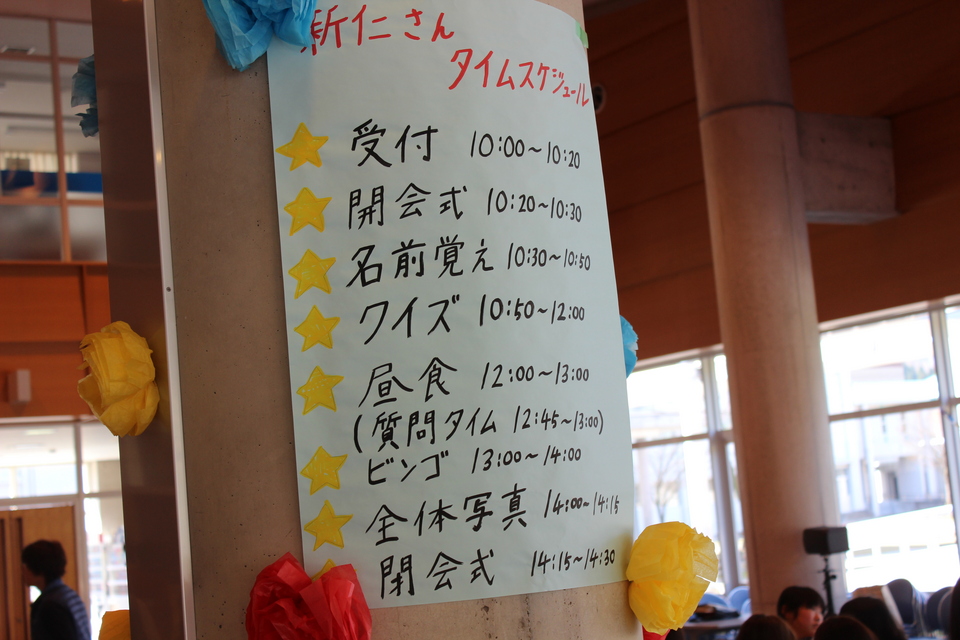 新仁さん
タイムスケジュール
受付 10:00~10:20
開会式 10:20~10:30
名前覚え 10:30~10:50
クイズ 10:50~12:00
昼食 12:00~13:00
(質問タイム 12:45~13:00)
ビンゴ 13:00~14:00
全体写真 14:00~14:15
閉会式 14:15~14:30